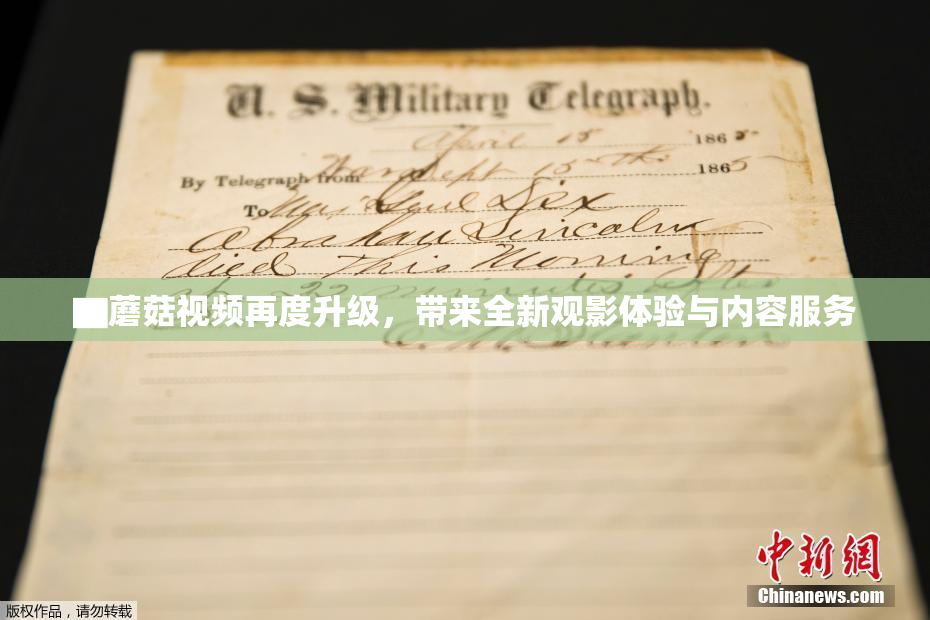 U. S. Military Telegraph.
April 15 1865
By Telegraph from War Dept 15th 1865
To Maj Genl Dix
Abraham Lincoln
died This Morning
at 22 minutes after
蘑菇视频再度升级，带来全新观影体验与内容服务
E. M. Stanton
中新网
Chinanews.com
版权作品，请勿转载